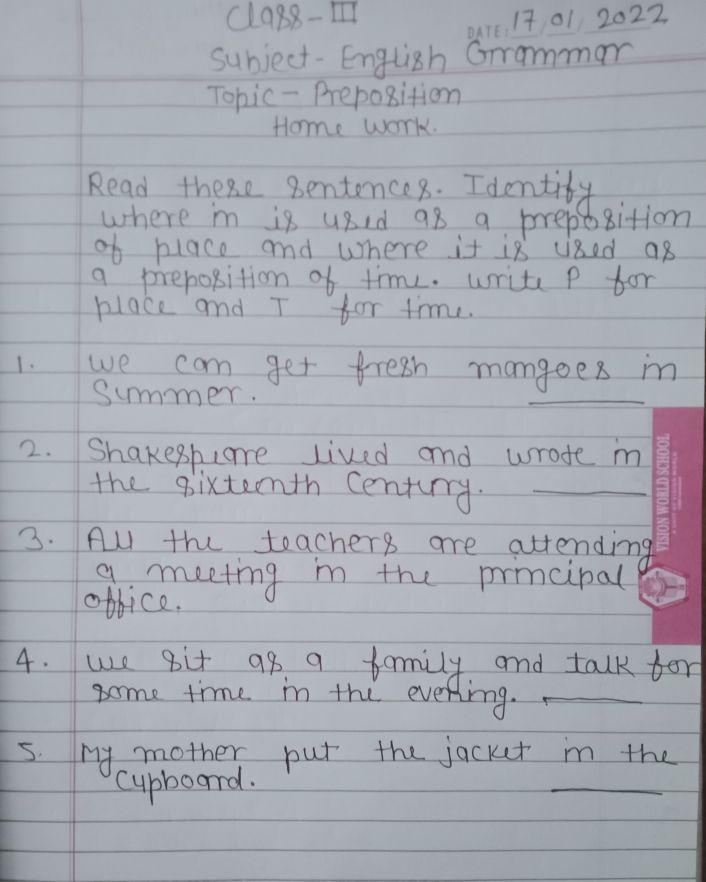 Class - III
DATE: 17, 01, 2022
Subject - English Grammar
Topic - Preposition
Home work.
Read these sentences. Identify
where in is used as a preposition
of place and where it is used as
a preposition of time. write P for
place and T for time.
1. we can get fresh mangoes in
Summer.
2. Shakespiare lived and wrote in
the sixteenth Century.
3. All the teachers are attending
a meeting in the principal
office.
4. we sit as a family and talk for
some time in the evening.
5. My mother put the jacket in the
Cupboard.
VISION WORLD SCHOOL